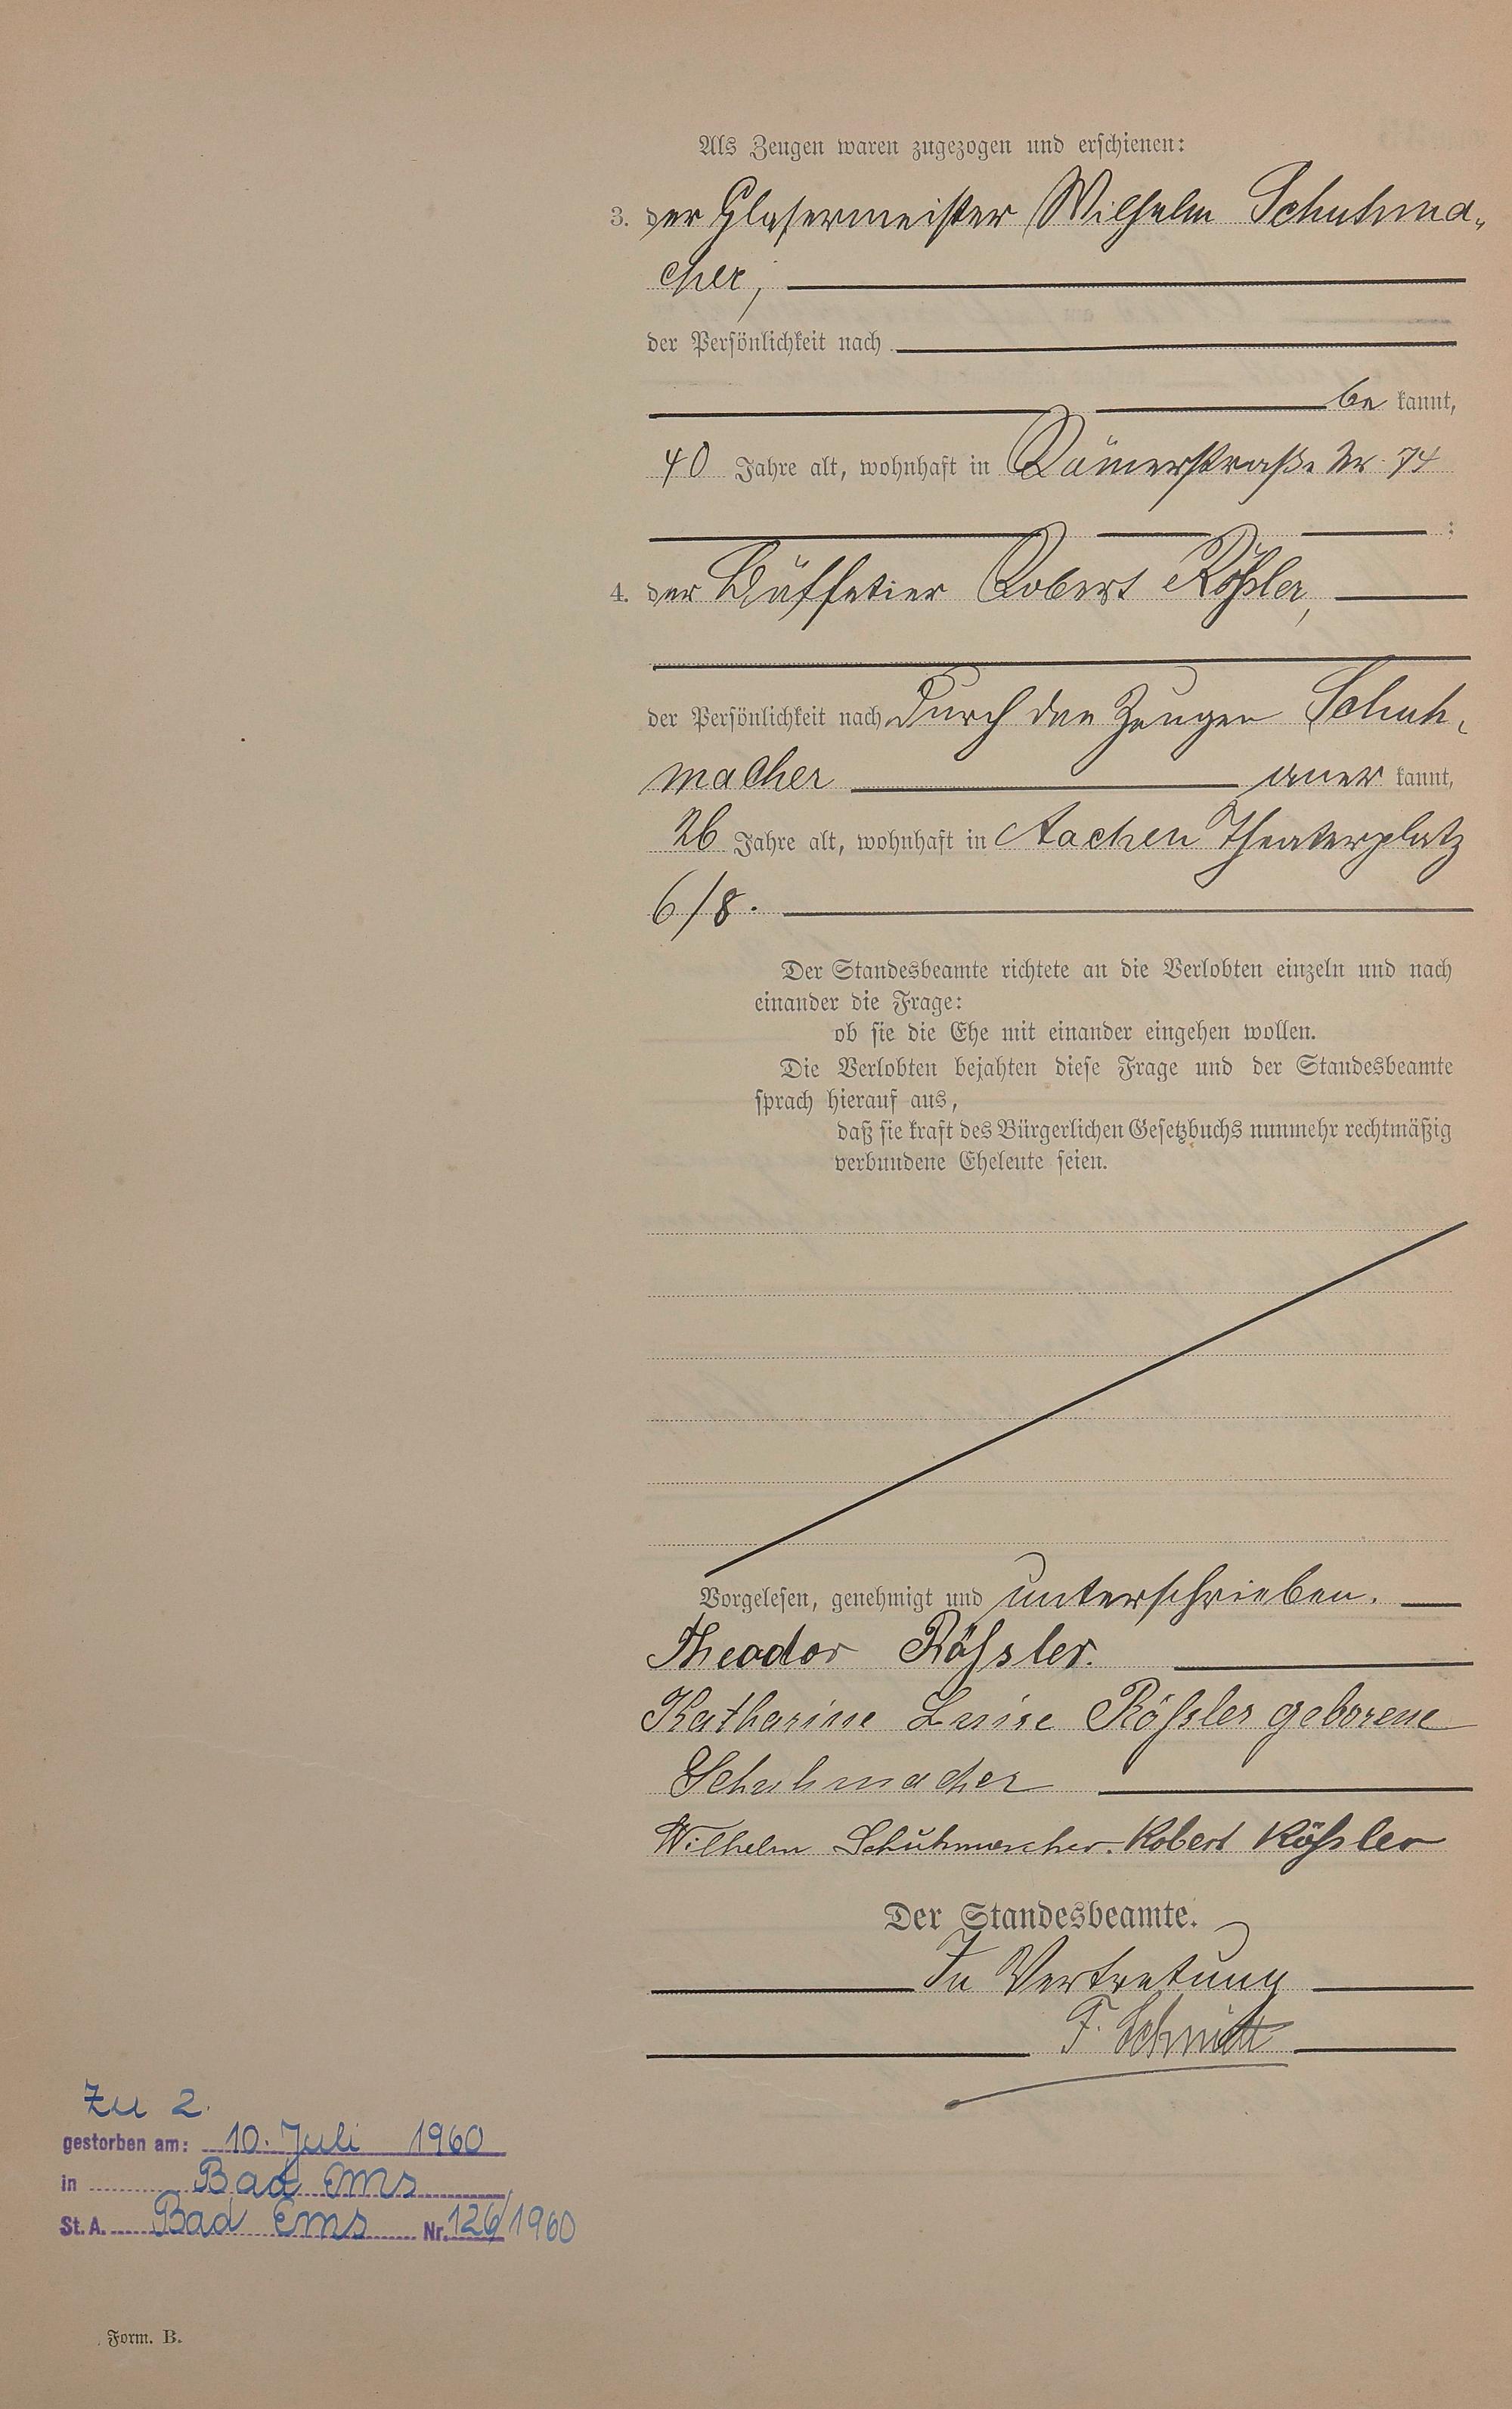 Als Zeugen waren zugezogen und erschienen:
3. der Glasermeister Wilhelm Schuhma-
cher,
der Persönlichkeit nach
be kannt,
40 Jahre alt, wohnhaft in Römerstraße Nr. 74
;
4. der Büffetier Robert Rößler,
der Persönlichkeit nach durch den Zeugen Schuh-
macher aner kannt,
26 Jahre alt, wohnhaft in Aachen Theaterplatz
6/8.
Der Standesbeamte richtete an die Verlobten einzeln und nach
einander die Frage:
ob sie die Ehe mit einander eingehen wollen.
Die Verlobten bejahten diese Frage und der Standesbeamte
sprach hierauf aus,
daß sie kraft des Bürgerlichen Gesetzbuchs nunmehr rechtmäßig
verbundene Eheleute seien.
Vorgelesen, genehmigt und unterschrieben.
Theodor Rößler.
Katharine Luise Rößler geborene
Schuhmacher
Wilhelm Schuhmacher. Robert Rößler
Der Standesbeamte.
In Vertretung
F. Schmitt
Zu 2.
gestorben am: 10. Juli 1960
in Bad Ems
St. A. Bad Ems Nr. 126/1960
Form. B.